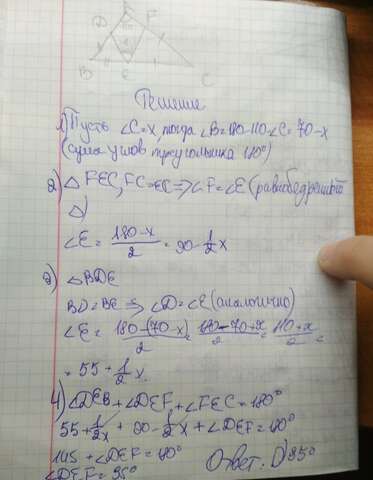 D F
B E C
Решение
1) Пусть ∠C=x, тогда ∠B=180-110-∠C=70-x
(сумма углов треугольника 180°)
2) △ FEC, FC=EC=>∠F=∠E (равнобедренный
△)
∠E = 180-x/2 = 90-1/2x
3) △BDE
BD=BE => ∠D=∠E (аналогично)
∠E = 180-(70-x)/2 = 180-70+x/2 = 110+x/2 =
= 55+1/2x.
4) ∠DEB+∠DEF+∠FEC=180°
55+1/2x + 90-1/2x+∠DEF=180°
145+∠DEF=180°
∠DEF=35°
Ответ: D)35°